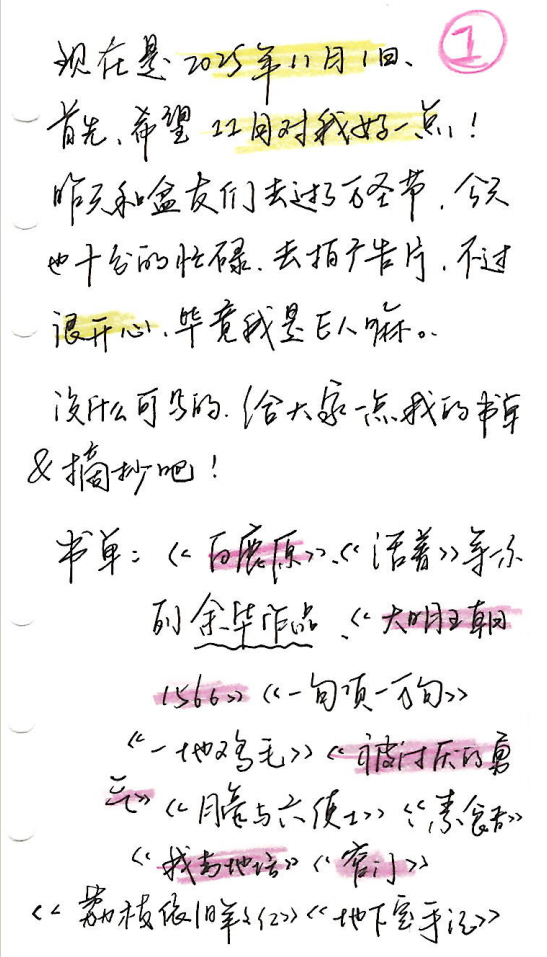 1
现在是2025年11月1日、
首先、希望11月对我好一点!
昨天和盆友们去过了万圣节,今天
也十分的忙碌、去拍广告片,不过
很开心、毕竟我是E人嘛。
没什么可写的、给大家一点我的书单
&摘抄吧!
书单:《白鹿原》、《活着》等一系
列余华作品、《大明王朝
1566》《一句顶一万句》
《一地鸡毛》《被讨厌的勇
气》《月亮与六便士》《素食者》
《我与地坛》《窄门》
《荔枝依旧年年红》《地下室手记》